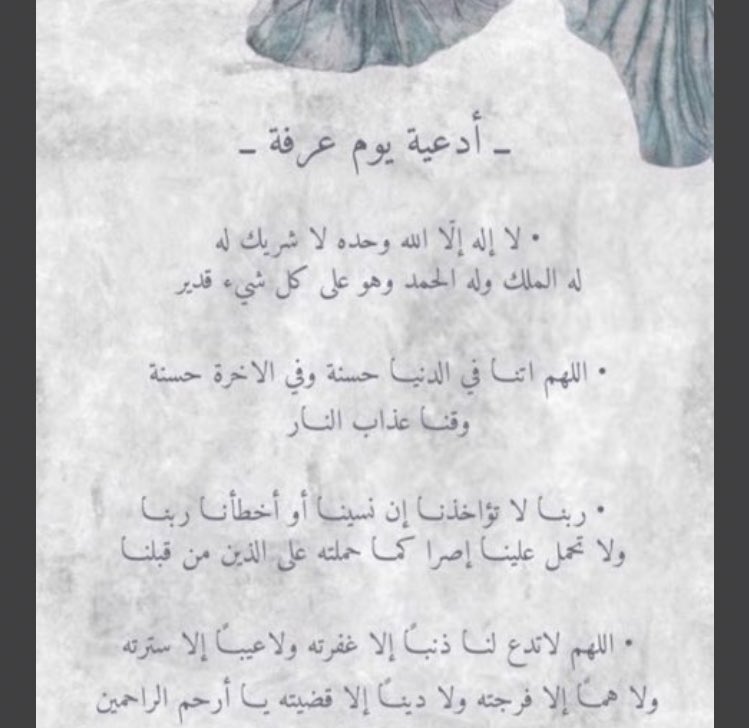 ـ أدعية يوم عرفة ـ
• لا إله إلّا الله وحده لا شريك له
له الملك وله الحمد وهو على كل شيء قدير
• اللهم اتنـا في الدنيـا حسنة وفي الاخرة حسنة
وقنـا عذاب النـار
• ربنـا لا تؤاخذنـا إن نسينـا أو أخطأنـا ربنـا
ولا تحمل علينـا إصرا كمـا حملته على الذين من قبلنـا
• اللهم لاتدع لنـا ذنبـًا إلا غفرته ولاعيبـًا إلا سترته
ولا همـًا إلا فرجته ولا دينـًا إلا قضيته يـا أرحم الراحمين